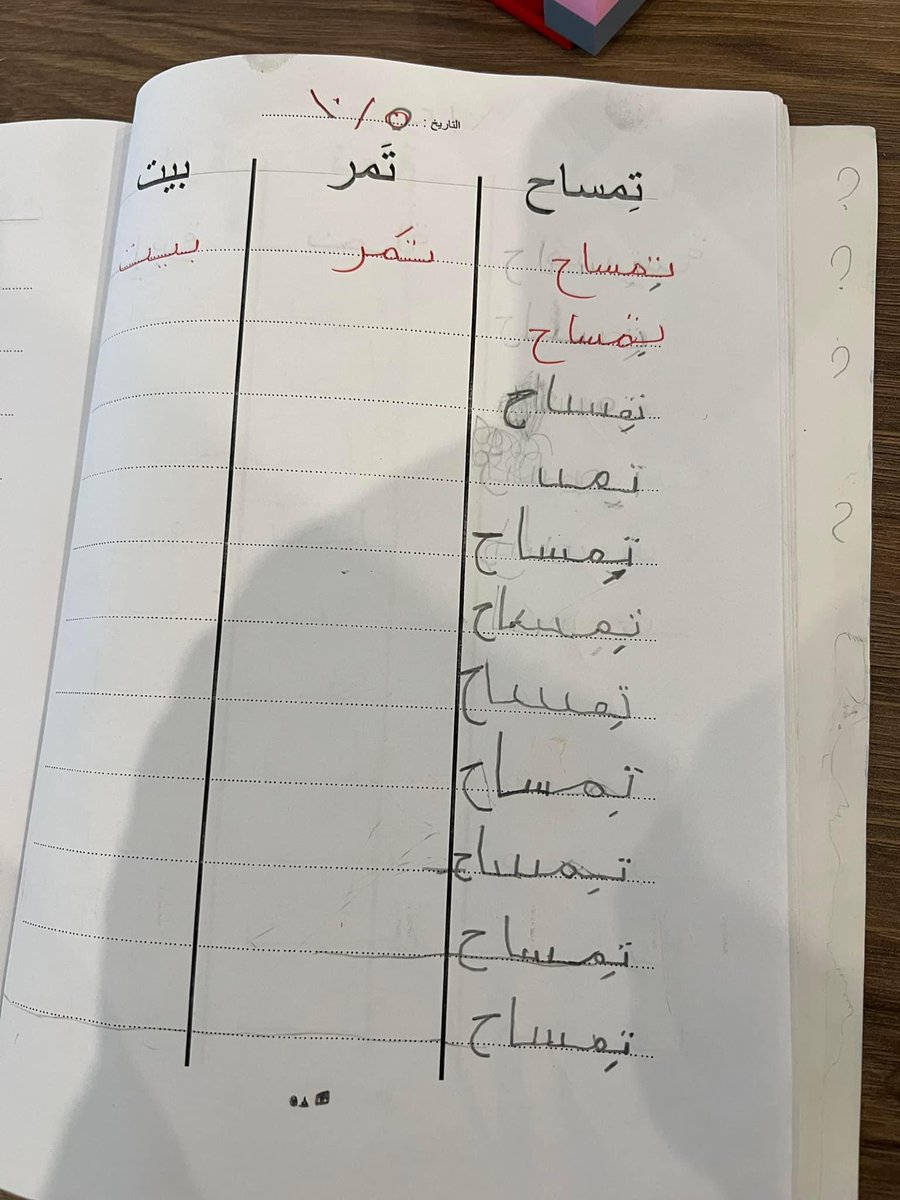 التاريخ : ١٠/٥
تِمساح تَمر بيت
تِمساح تَمر بيت
تِمساح
تِمساح
تمسـ
تِمساح
تِمساح
تِمساح
تِمساح
تِمساح
تِمساح
تِمساح